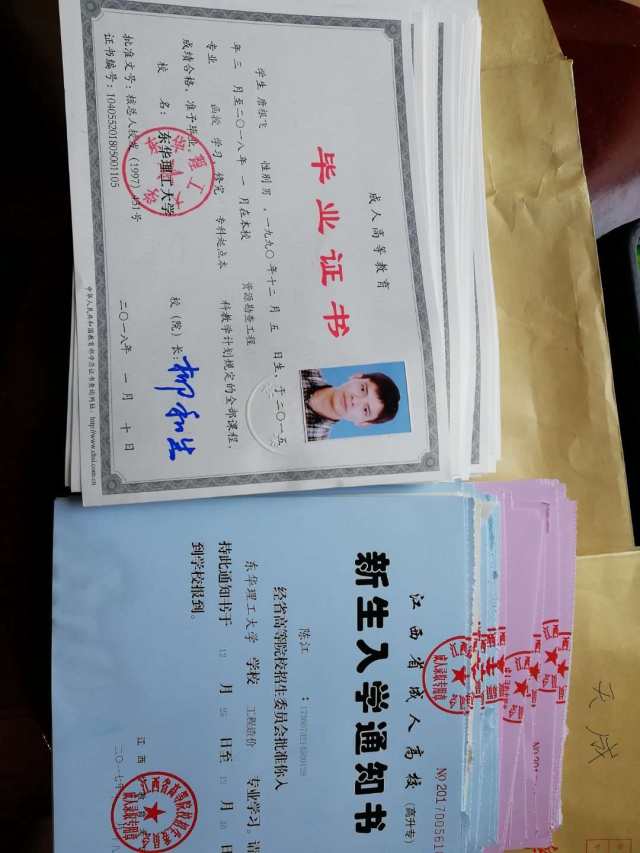 成人高等教育
毕业证书
学生 唐根飞 性别 男，一九九〇年十二月五日生，于二〇一五
年三月至二〇一八年一月在本校 资源勘查工程
专业 函授 学习，修完 专科起点本 科教学计划规定的全部课程，
成绩合格，准予毕业。
校 名：东华理工大学 校（院）长：
批准文号：核总人教发（1997）
证书编号：104055201805001105
二〇一八年 一月 十日
中华人民共和国教育部学历证书查询网址：http://www.chsi.com.cn
江西省成人高校（高升专）
NO 201700561
新生入学通知书
陈江：
经省高等院校招生委员会批准你入
东华理工大学 学校 工程造价 专业学习。请
持此通知书于 12 月 25 日至 12 月 30 日
到学校报到。
江西
二〇一七年
成人录取专用章
成人录取专用章
NO 201
天成